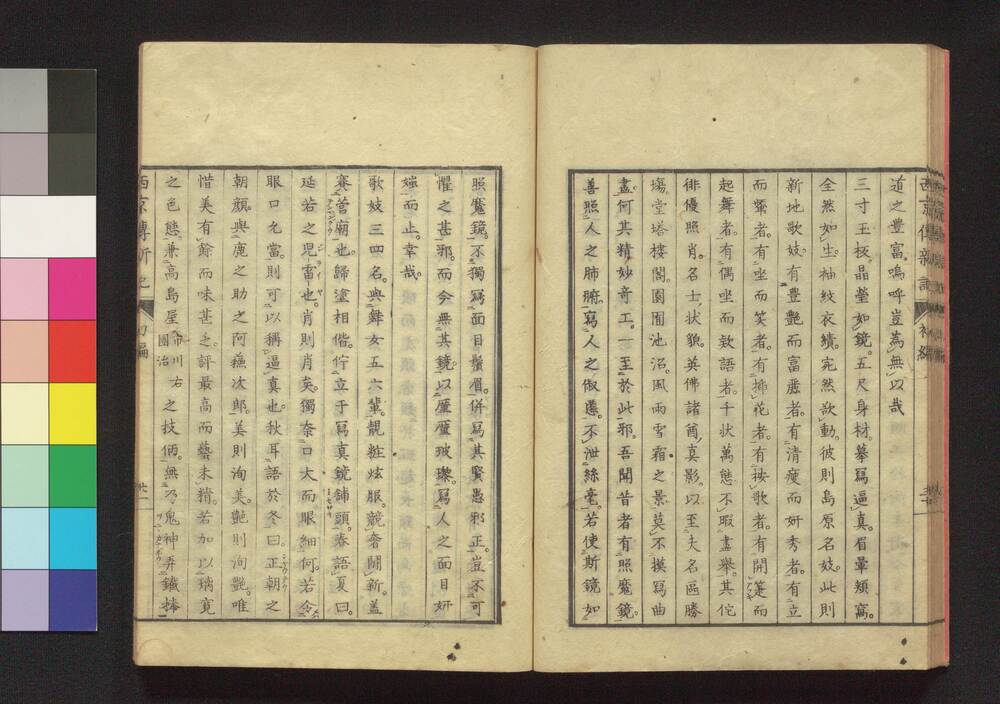 西京傳新記 初編
道之豐富。嗚呼豈為無以哉
三寸玉板。晶瑩如鏡。五尺身材。摹寫逼真。眉暈頰窩。
全然如生。袖紋衣績。宛然欲動。彼則島原名妓。此則
新地歌妓。有豐艷而富麗者。有清瘦而妍秀者。有立
而顰者。有坐而笑者。有插花者。有按歌者。有開筵而
起舞者。有偶坐而欵語者。千狀萬態不暇盡舉。其佗
俳優照肖。名士狀貌。英佛諸酋真影。以至夫名區勝
塲堂塔樓閣。園囿池沼。風雨雪霜之景。莫不摸寫曲
盡。何其精妙奇工。一至於此邪。吾聞昔者有照魔鏡。
善照人之肺腑。寫人之倣。不泄絲毫。若使斯鏡如
照魔鏡。不獨寫面目鬚眉。併寫其賢愚邪正。豈不可
懼之甚邪。而今無其鏡。以區區玻瓈。寫人之面目妍
媸而止。幸哉。
歌妓三四名。與舞女五六輩。靚粧炫服。競奢鬪新。蓋
賽菅廟也。歸塗相偕。佇立于寫真鏡舖頭。春語夏曰。
延若之兒雷也。肖則肖矣。獨奈口大而眼細何。若令
眼口允當。則可以稱逼真也。秋耳語於冬曰。正朝之
朝顏與鹿之助之阿蘓次郎。美則洵美。艷則洵艷。唯
惜美有餘而味甚乏。評最高而藝未精。若加以璃寛
之色態。兼高島屋 市川右團治 之技倆。無乃鬼神弄鐵捧
西京傳新記 初編